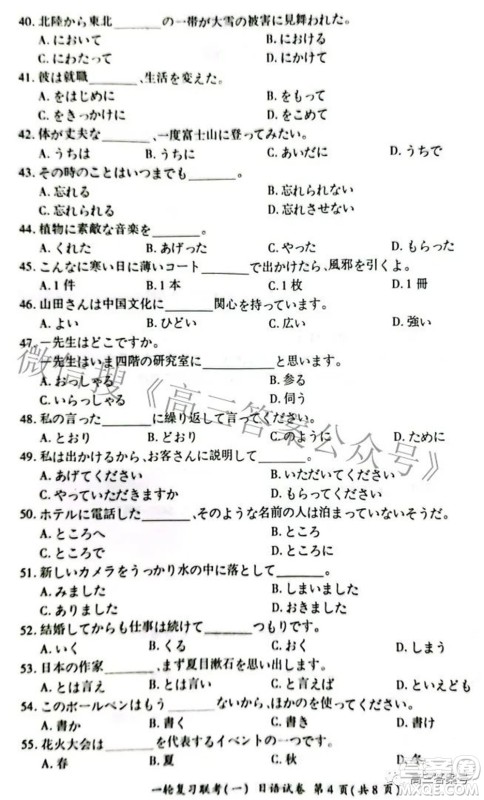 40. 北陸から東北______の一帯が大雪の被害に見舞われた。
A. において B. にかけて
C. にわたって D. にとって
41. 彼は就職______、生活を変えた。
A. をはじめに B. をもって
C. をきっかけに D. をこめて
42. 体が丈夫な______、一度富士山に登ってみたい。
A. うちは B. うちに C. あいだに D. うちで
43. その時のことはいつまでも______。
A. 忘れる B. 忘れられない
C. 忘れられる D. 忘れさせない
44. 植物に素敵な音楽を______。
A. くれた B. あげった C. やった D. もらった
45. こんなに寒い日に薄いコート______で出かけたら、風邪を引くよ。
A. 1件 B. 1本 C. 1枚 D. 1冊
46. 山田さんは中国文化に______関心を持っています。
A. よい B. ひどい C. 広い D. 強い
47. ー先生はどこですか。
ー先生はいま四階の研究室に______と思います。
A. おっしゃる B. 参る
C. いらっしゃる D. 伺う
48. 私の言った______に繰り返して言ってください。
A. とおり B. どおり C. まま D. ために
49. 私は出かけるから、お客さんに説明して______。
A. あげてください B. いただいてください
C. やっていただきます D. やってください
50. ホテルに電話した______、そのような名前の人は泊まっていないそうだ。
A. ところへ B. ところ
C. ところで D. ところに
51. 新しいカメラをうっかり水の中に落として______。
A. みました B. いました
C. ありました D. しまいました
52. 結婚してからも仕事は続けて______つもりです。
A. いく B. くる C. おく D. しまう
53. 日本の作家______、まず夏目漱石を思い出します。
A. とは言え B. とは言えず C. と言えば D. と言えども
54. このボールペンはもう______ないから、ほかのを使ってください。
A. 書か B. 書く C. 書き D. 書け
55. 花火大会は______を代表するイベントの一つです。
A. 春 B. 夏 C. 秋 D. 冬
一轮复习联考(一) 日语试卷 第4页(共8页)
微信搜《高三答案公众号》
高三答案号